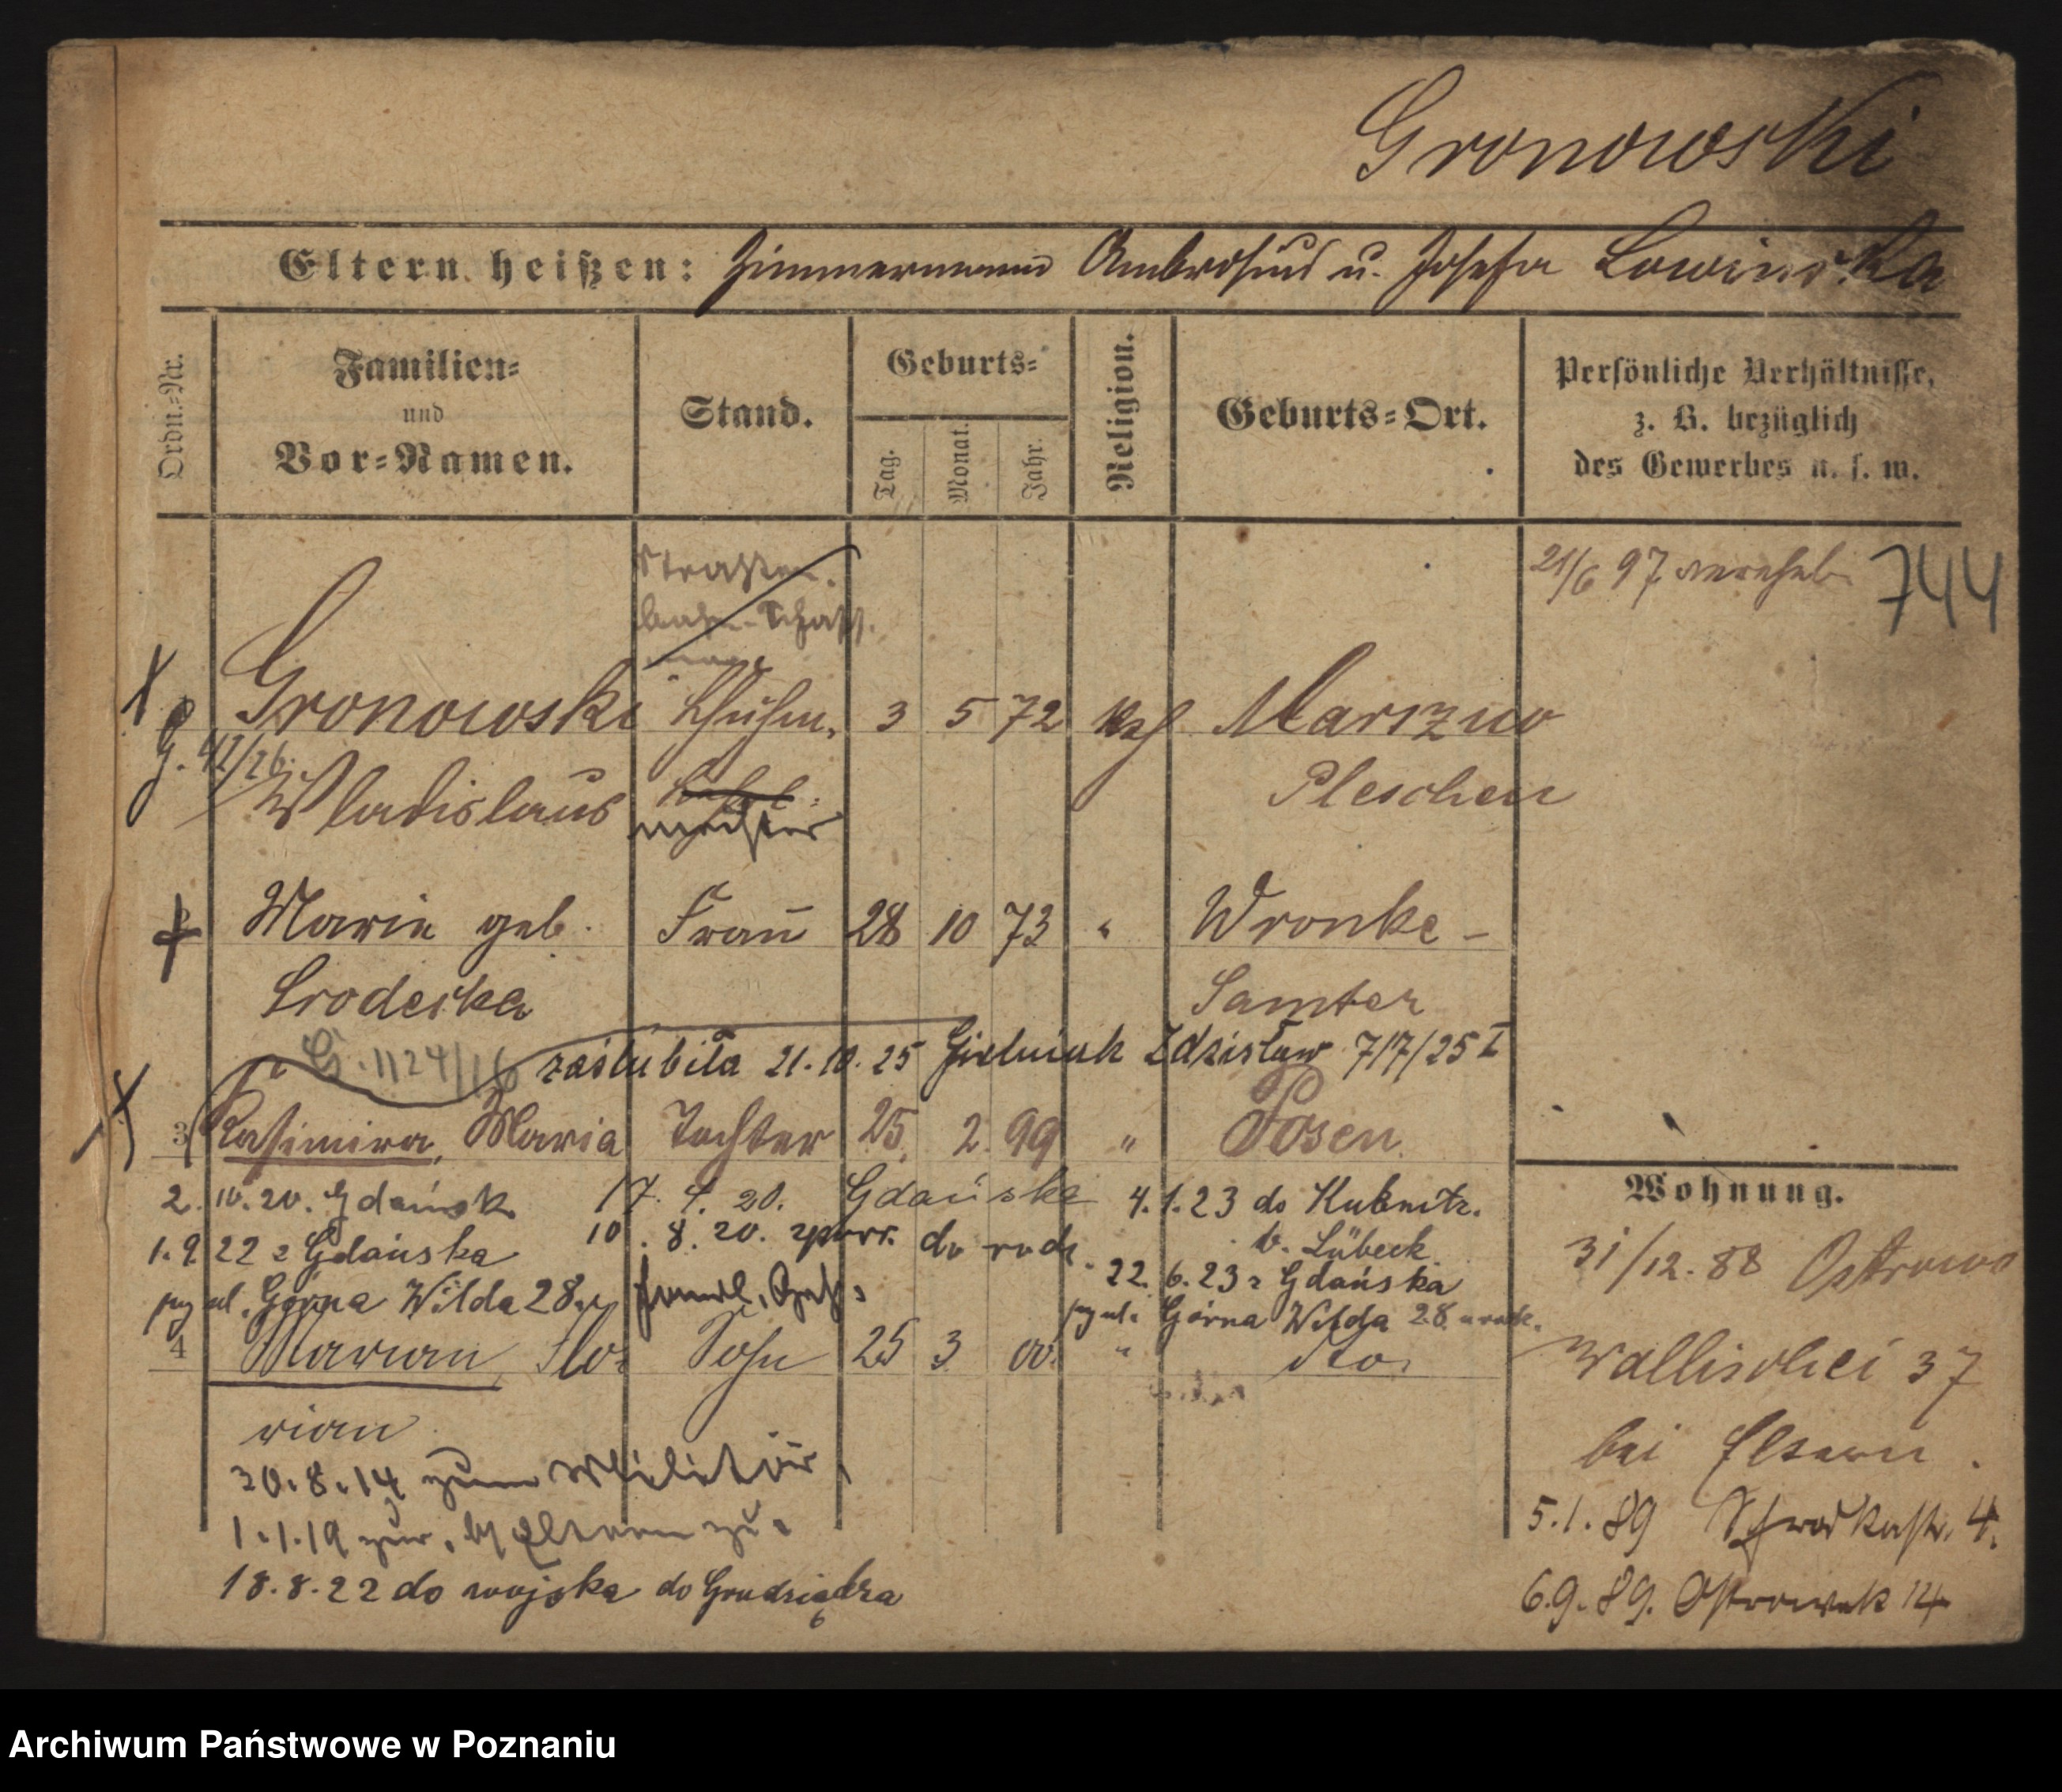 Gronowski
Eltern heißen: Zimmermann Ambrosius u. Josefa Lowinska
Ordn.-Nr.
Familien-
und
Vor-Namen.
Stand.
Geburts-
Tag.
Monat.
Jahr.
Religion.
Geburts-Ort.
Persönliche Verhältnisse,
z. B. bezüglich
des Gewerbes u. s. w.
21/6 97 vereh. 744
Straßen-
bahn-Schaff.
Gronowski 3 5 72 kath
G. 42/26
Wladislaus meister
Pleschen
Marie geb. Frau 28 10 73 " Wronke -
Srodecka Samter
G. 1124/16 zaślubiła 21.10.25 Gielniak Zdzisław 7/7/25 I
3 Kasimira, Maria Tochter 25. 2. 99 " Posen
2.10.20. Gdańsk 17. 4. 20. Gdańska 4.1.23 do Kubnitz.
b. Lübeck
1.9.22 z Gdańska 10.8.20. do rodz.
22.6.23 z Gdańska
ul. Górna Wilda 28.
ul. Górna Wilda 28.
4 Marian, Flo- Sohn 25 3 00 " dto.
rian
30.8.14 zum Militär
1.1.19 zur. Eltern zu.
18.8.22 do wojska do Grudziądza
Wohnung.
31/12.88 Ostrowo
Wallischei 37
bei Eltern.
5.1.89 Schrodkastr. 4.
6.9.89. Ostrowek 14
Archiwum Państwowe w Poznaniu